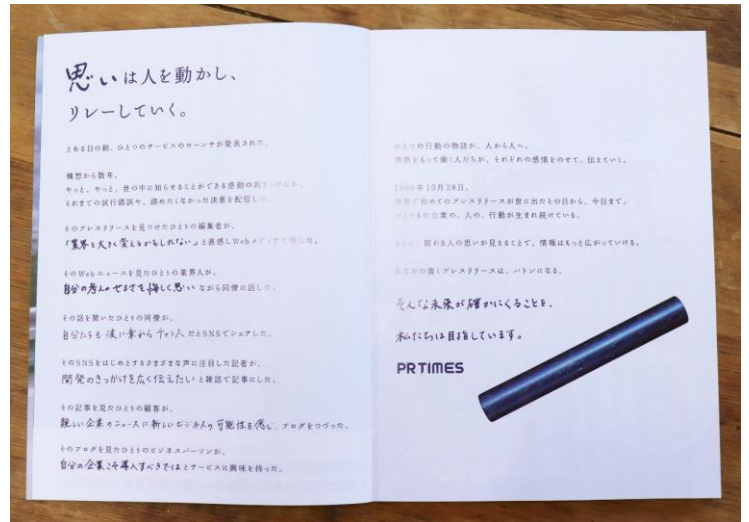 思いは人を動かし、
リレーしていく。
とある日の朝、ひとつのサービスのローンチが発表された。
構想から数年。
やっと、やっと、世の中に知らせることができる感動の
それまでの試行錯誤や、諦めたくなかった決意を配信した。
そのプレスリリースを見つけたひとりの編集者が、
「業界を大きく変えるかもしれない」と直感しWebメディアで報じた。
そのWebニュースを見たひとりの業界人が、
自分の考えのせまさを悔しく思いながら同僚に話した。
その話を聞いたひとりの同僚が、
自分たちも波に乗れるチャンスだとSNSでシェアした。
そのSNSをはじめとするさまざまな声に注目した記者が、
開発のきっかけを広く伝えたいと雑誌で記事にした。
その記事を見たひとりの顧客が、
親しい企業のニュースに新しいビジネスの可能性を感じ、ブログをつづった。
そのブログを見たひとりのビジネスパーソンが、
自分の企業こそ導入すべきではとサービスに興味を持った。
ひとつの行動の物語が、人から人へ。
情熱をもって働く人たちが、それぞれの感情をのせて、伝えていく。
1906年10月28日。
世界で初めてのプレスリリースが世に出たその日から、今日まで。
いくつもの企業の、人の、行動が生まれ続けている。
関わる人の思いが見えることで、情報はもっと広がっていける。
あなたの書くプレスリリースは、バトンになる。
そんな未来が確かにくることを、
私たちは目指しています。
PR TIMES